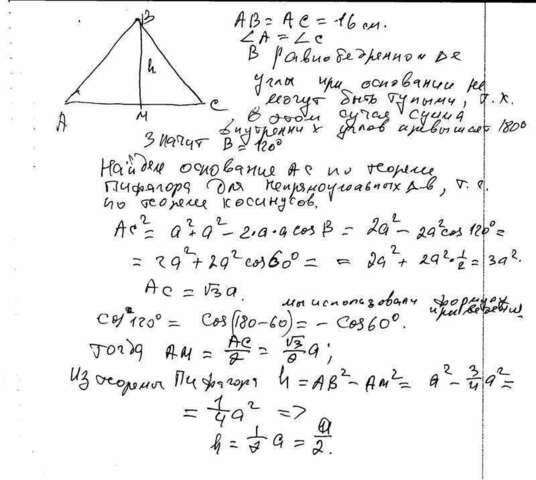 B
h
A
M
C
AB = AC = 16 см.
∠A = ∠C
В равнобедренном Δе
углы при основании не
могут быть тупыми, т.к.
в этом случае сумма
внутренних углов превышает 180°
Значит B = 120°
Найдем основание AC по теореме
Пифагора для непрямоугольных Δ-в, т.е.
по теореме косинусов.
AC² = a² + a² - 2·a·a cos B = 2a² - 2a² cos 120° =
= 2a² + 2a² cos 60° = = 2a² + 2a²·½ = 3a².
AC = √3a.
мы использовали формулы
приведения
Cos 120° = Cos(180-60) = - Cos 60°.
Тогда AM = AC/2 = √3/2 a;
Из теоремы Пифагора h = AB² - AM² = a² - 3/4 a² =
= 1/4 a² =>
h = 1/2 a = a/2.